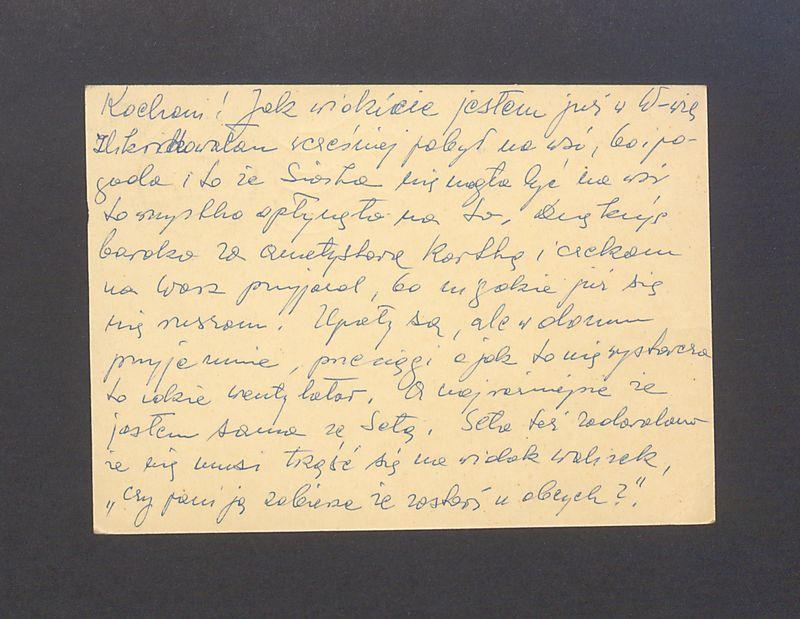 Kochani! Jak widzicie jestem już w W-wie
Zlikwidowałam wcześniej pobyt na wsi, bo i po-
goda i to że Siostra nie mogła być na wsi
to wszystko wpłynęło na to. Dziękuję
bardzo za ametystową kartkę i czekam
na Wasz przyjazd, bo nigdzie już się
nie ruszam. Upały są, ale w domu
przyjemnie, przeciągi a jak to nie wystarcza
to idzie wentylator. A najważniejsze że
jestem sama ze Setą. Seta też zadowolona
że nie musi trząść się na widok walizek,
„czy pani ją zabierze że zostać u obcych?".